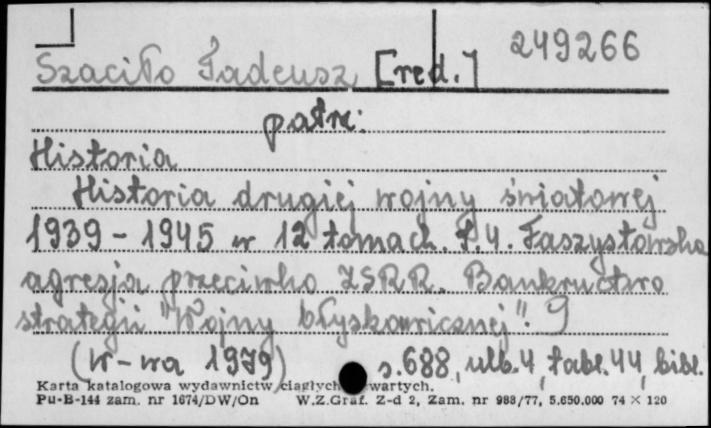 249266
Szaciło Tadeusz [red.]
patrz:
Historia
Historia drugiej wojny światowej
1939-1945 w 12 tomach. T.4. Faszystowska
agresja przeciwko ZSRR. Bankructwo
strategii "Wojny błyskawicznej".
(W-wa 1979) s.688, ulb.4, tabl.44, bibl.
Karta katalogowa wydawnictw ciągłych wartych.
Pu-B-144 zam. nr 1674/DW/On W.Z.Graf. Z-d 2, Zam. nr 988/77, 5.650.000 74 × 120